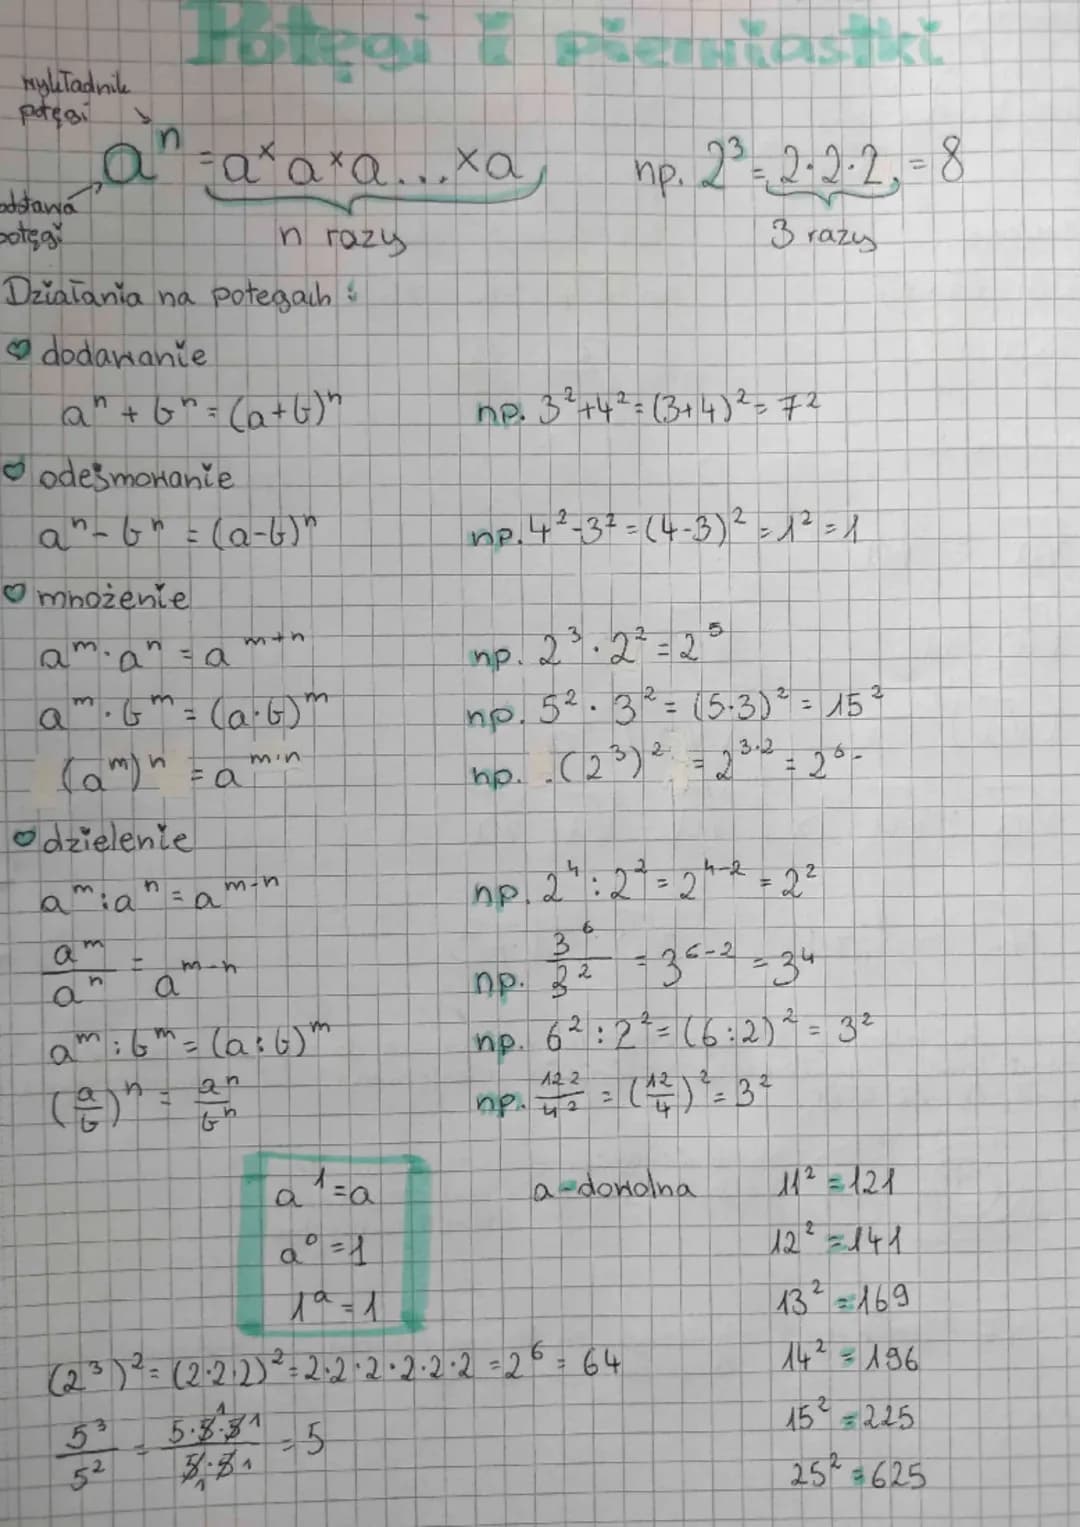 Potęgi i pierwiastki
wykładnik
potęgi
aⁿ = a × a × a ... × a np. 2³ = 2·2·2 = 8
podstawa
potęgi n razy 3 razy
Działania na potegach :
dodawanie
aⁿ + bⁿ = (a+b)ⁿ np. 3² + 4² = (3+4)² = 7²
odejmowanie
aⁿ - bⁿ = (a-b)ⁿ np. 4² - 3² = (4-3)² = 1² = 1
mnożenie
a^m · a^n = a^(m+n) np. 2³ · 2² = 2⁵
a^m · b^m = (a·b)^m np. 5² · 3² = (5·3)² = 15²
(a^m)^n = a^(m·n) np. (2³)² = 2^(3·2) = 2⁶
dzielenie
a^m : a^n = a^(m-n) np. 2⁴ : 2² = 2^(4-2) = 2²
a^m/a^n = a^(m-n) np. 3⁶/3² = 3^(6-2) = 3⁴
a^m : b^m = (a:b)^m np. 6² : 2² = (6:2)² = 3²
(a/b)ⁿ = aⁿ/bⁿ np. 12²/4² = (12/4)² = 3²
a¹ = a a - dowolna 11² = 121
a⁰ = 1 12² = 141
1^a = 1 13² = 169
(2³)² = (2·2·2)² = 2·2·2·2·2·2 = 2⁶ = 64 14² = 196
15² = 225
5³/5² = 5·5·5/5·5 = 5
25² = 625